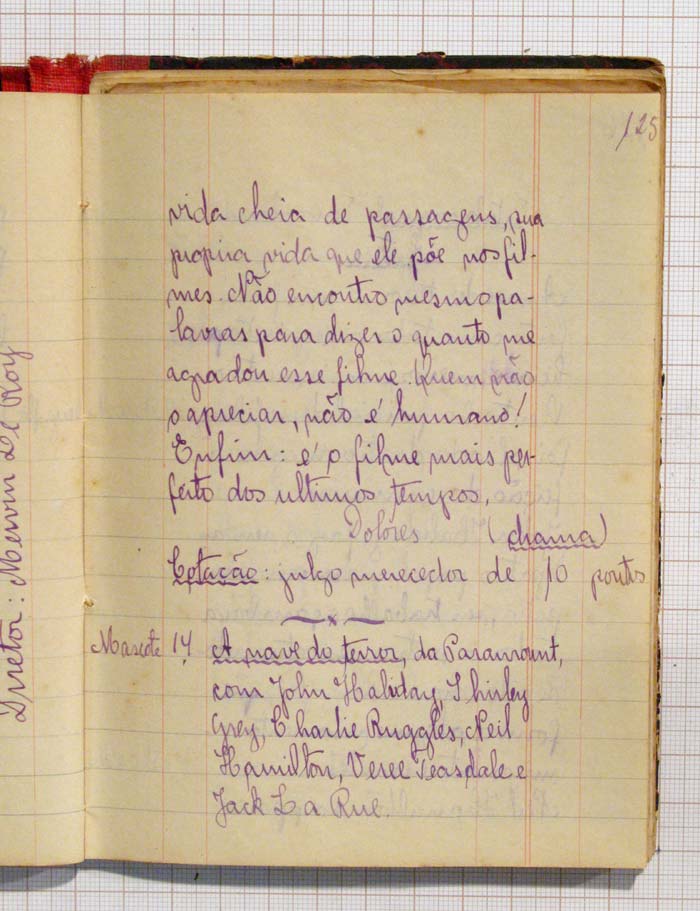 125
vida cheia de passagens, sua
propria vida que ele põe nos fil-
mes. Não encontro mesmo pa-
lavras para dizer o quanto me
agradou esse filme. Quem não
o apreciar, não é humano!
Enfim: é o filme mais per-
feito dos ultimos tempos.
Dolóres (drama)
Cotação: julgo merecedor de 10 pontos
Mascote 14 A nave do terror, da Paramount,
com John Haliday, Shirley
Grey, Charlie Ruggles, Neil
Hamilton, Veree Teasdale e
Jack La Rue.
Diretor: Mervin Le Roy